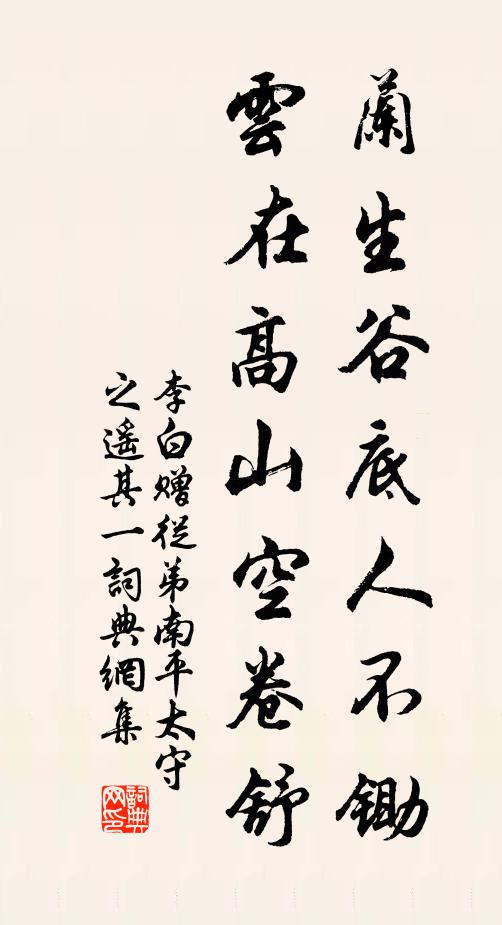 蘭生谷底人不鋤
雲在高山空卷舒
李白贈從弟南平太守
之遙其一詞典網集
詞典
网印